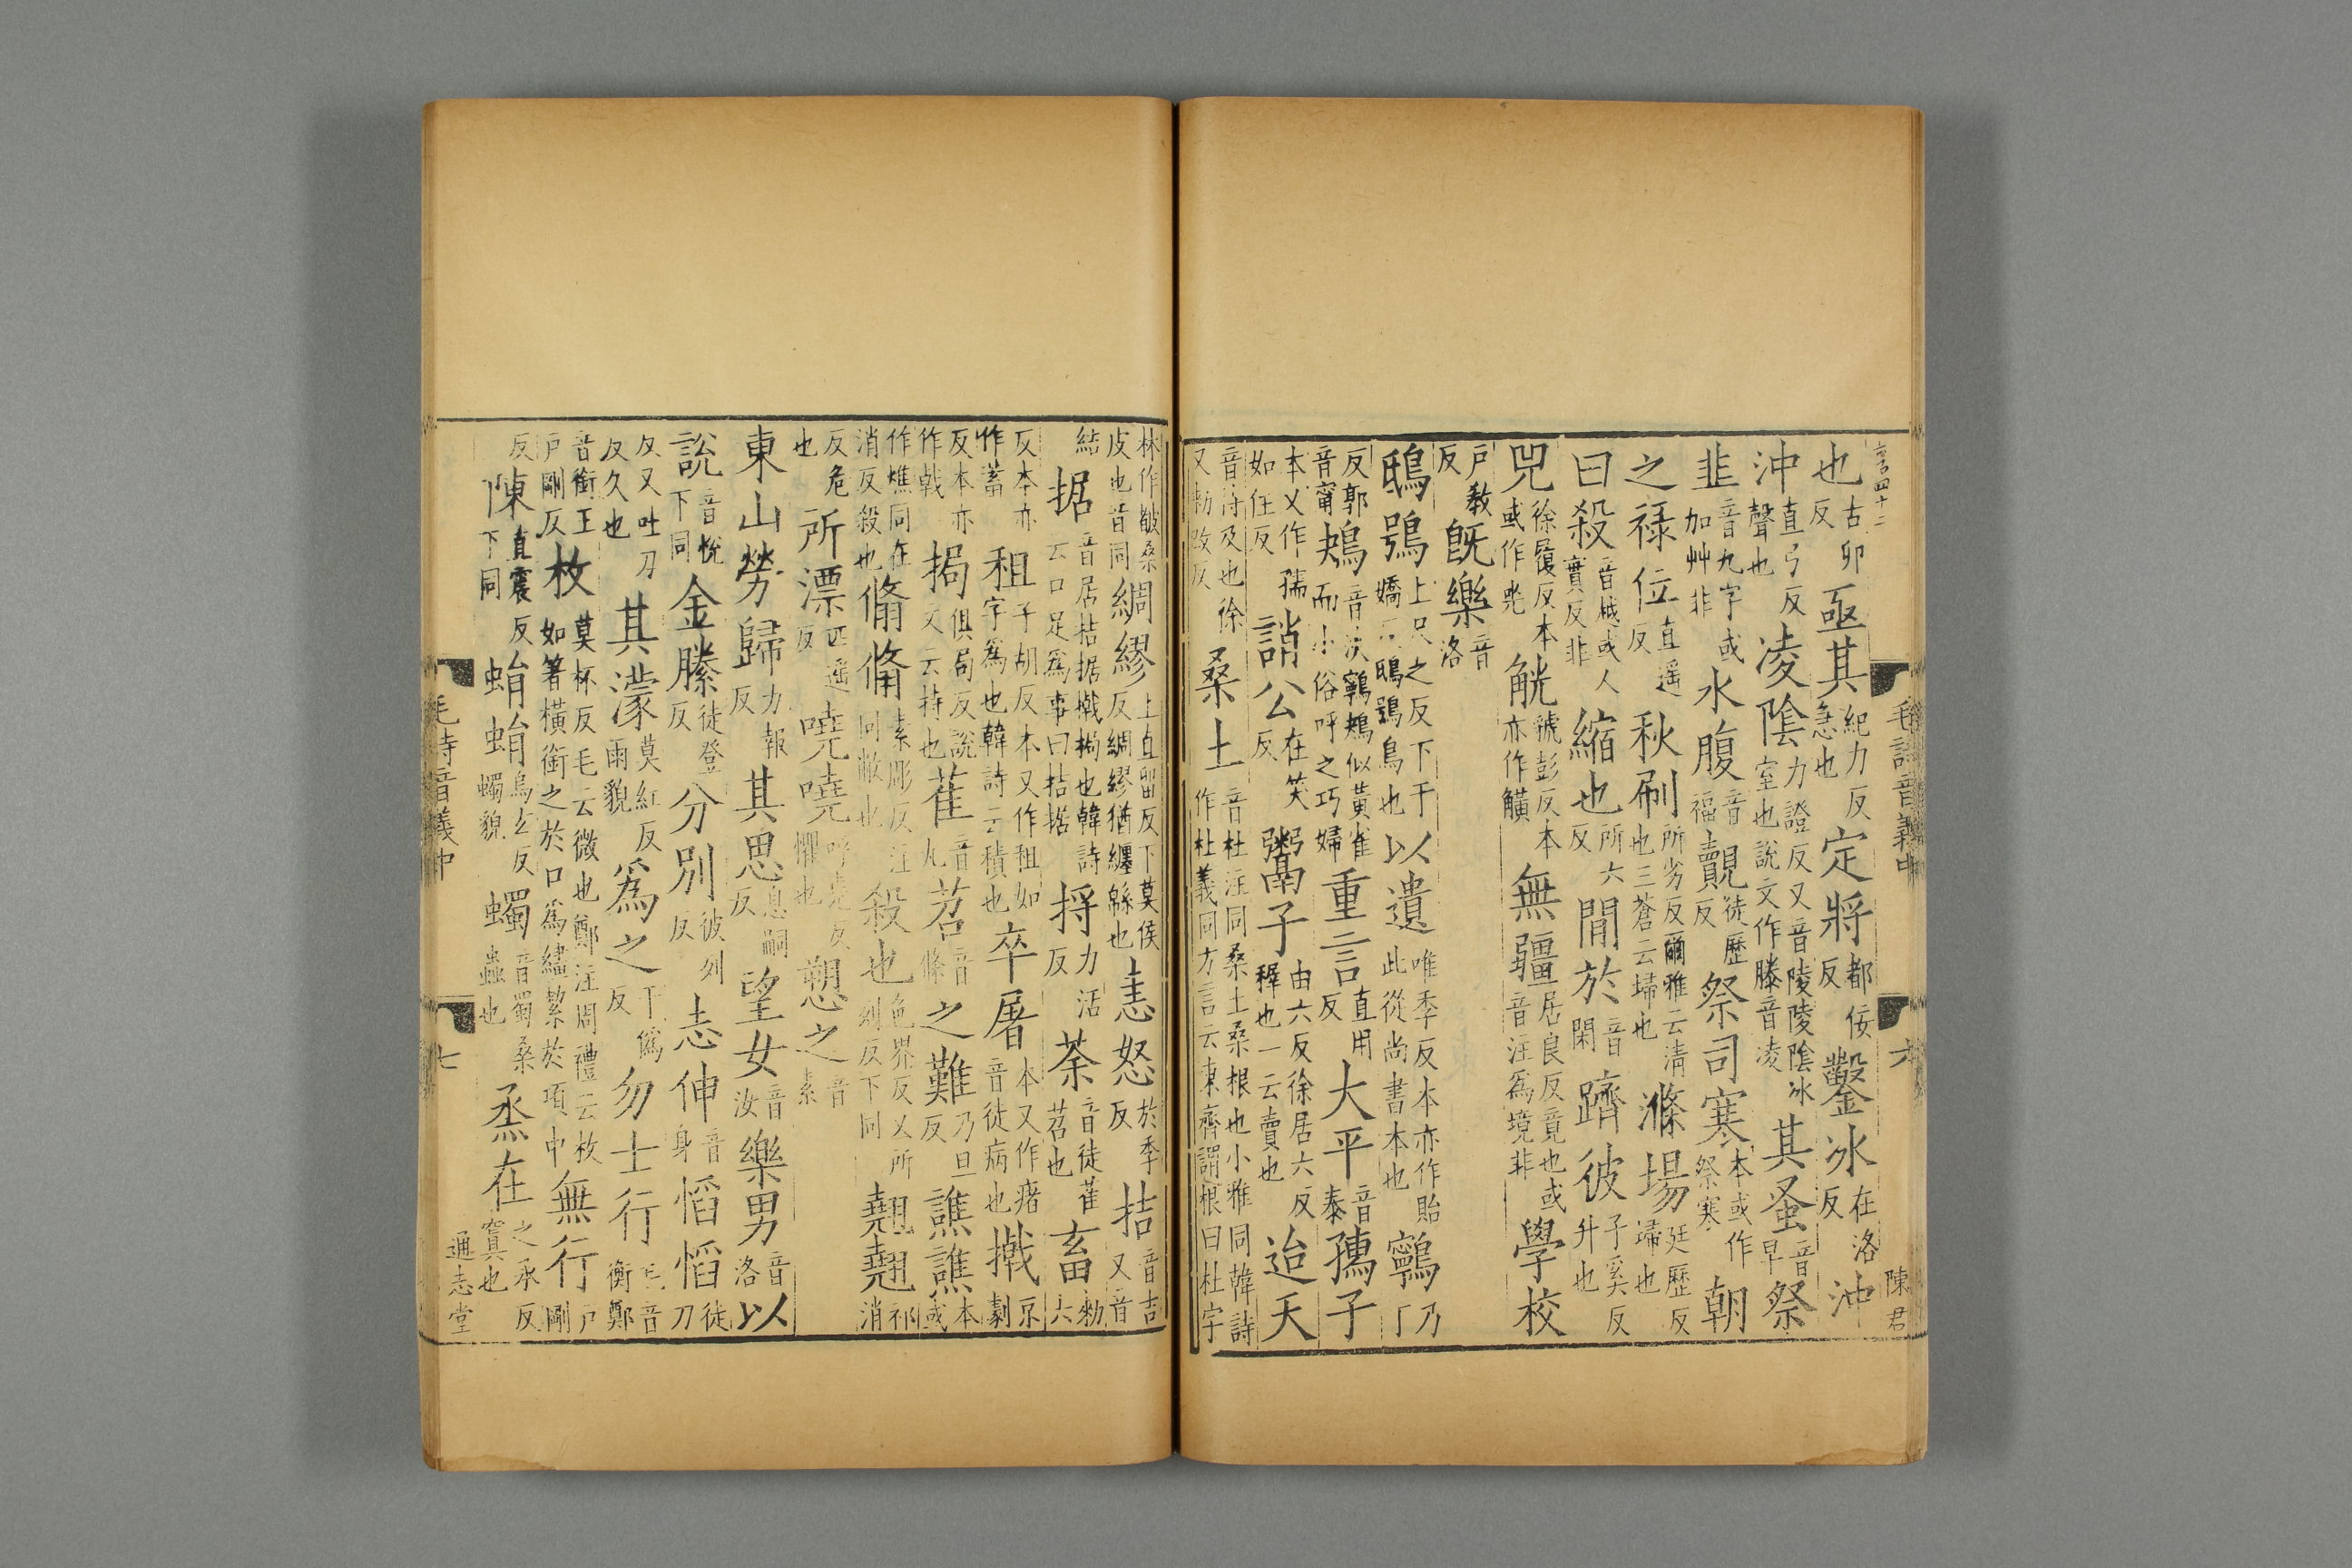 毛詩音義中 六 陳君
也古卯反亟其紀力反急也定將都佞反鑿冰在洛反沖
沖直弓反聲也凌陰力證反又音陵陵陰冰室也說文作滕音凌其蚤音早祭
韭音九字或加艸非水腹音福覿徒歷反祭司寒本或作祭寒朝
之祿位直遥反秋刷所劣反爾雅云清也三蒼云埽也滌場廷歷反埽也
曰殺音越或人實反非縮也所六反閒於音閑躋彼子奚反升也
兕徐履反本或作觥虢彭反本亦作觵無疆居良反竟也或音注爲境非學校
戶教反旣樂音洛
鴟鴞上尺之反下于嬌反鴟鴞鳥也以遺唯季反本亦作貽此從尚書本也鸋乃丁
反郭音甯鴂音決鸋鴂似黃雀而小俗呼之巧婦重言直用反大平音泰孺子
本又作孺如住反誚公在笑反鬻子由六反徐居六反稺也一云賣也迨天
音待及也徐又勑改反桑土音杜注同桑土桑根也小雅同韓詩作杜義同方言云東齊謂根曰杜字
林作桑皮也音同綢繆上直留反下莫侯反綢繆猶纏緜也恚怒於季反拮音吉又音
結据音居拮据撠挶也韓詩云口足爲事曰拮据捋力活反荼音徒萑苕也畜勑六
反本亦作蓄租子胡反本又作租如字爲也韓詩云積也卒屠本又作瘏音徒病也撠京劇
反本亦作戟挶俱局反說文云持也萑音丸苕音條之難乃旦反譙譙本或
作燋同在消反殺也翛翛素彫反注同敝也殺也色界反又所列反下同翹翹祁消
反危也所漂匹遥反嘵嘵呼堯反懼也愬之音素
東山勞歸力報反其思息嗣反望女音汝樂男音洛以
說音悅下同金縢徒登反分別彼列反志伸音身慆慆徒刀
反又吐刀反久也其濛莫紅反雨貌爲之于僞反勿士行毛音衡鄭
音銜王戶剛反枚莫杯反毛云微也鄭注周禮云枚如箸橫銜之於口爲繣絜於項中無行戶剛
反陳直震反下同蜎蜎烏玄反蠋貌蠋音蜀桑蟲也烝在之承反窴也
毛詩音義中 七 通志堂